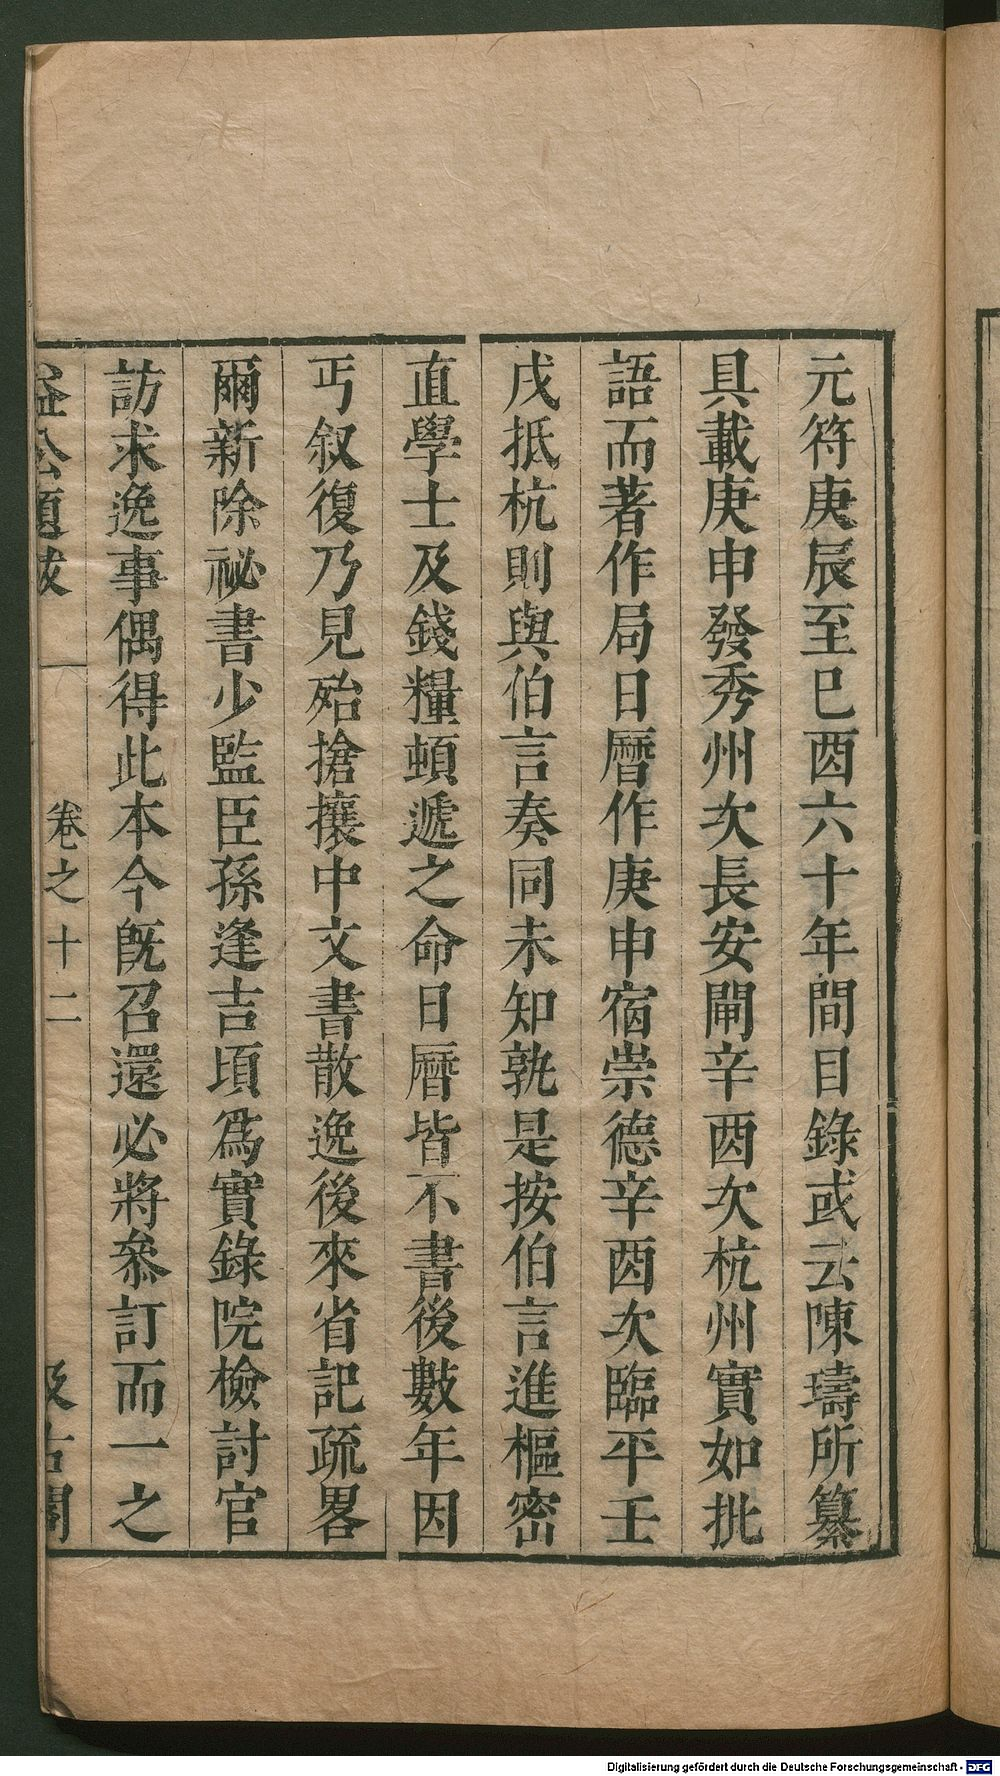 元符庚辰至巳酉六十年間目錄或云陳璹所纂
具載庚申發秀州次長安閘辛酉次杭州實如批
語而著作局日曆作庚申宿崇德辛酉次臨平壬
戌抵杭則與伯言奏同未知孰是按伯言進樞密
直學士及錢糧頓遞之命日曆皆不書後數年因
丐叙復乃見殆搶攘中文書散逸後來省記疏畧
爾新除祕書少監臣孫逢吉頃爲實錄院檢討官
訪求逸事偶得此本今旣召還必將叅訂而一之
益公題跋 卷之十二 汲古閣
Digitalisierung gefördert durch die Deutsche Forschungsgemeinschaft - DFG